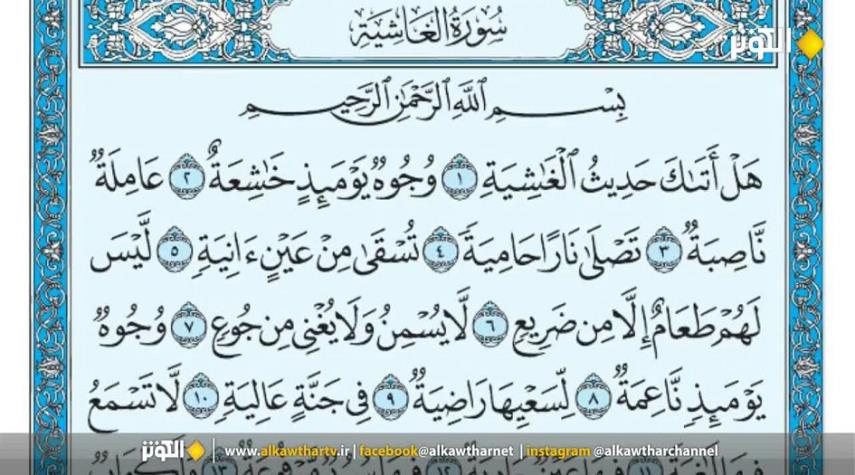 سُورَةُ الغَاشِيَةِ
الكوثر
بِسْمِ ٱللَّهِ ٱلرَّحْمَٰنِ ٱلرَّحِيمِ
هَلْ أَتَىٰكَ حَدِيثُ ٱلْغَٰشِيَةِ ١ وُجُوهٌ يَوْمَئِذٍ خَٰشِعَةٌ ٢ عَامِلَةٌ
نَّاصِبَةٌ ٣ تَصْلَىٰ نَارًا حَامِيَةً ٤ تُسْقَىٰ مِنْ عَيْنٍ ءَانِيَةٍ ٥ لَّيْسَ
لَهُمْ طَعَامٌ إِلَّا مِن ضَرِيعٍ ٦ لَّا يُسْمِنُ وَلَا يُغْنِى مِن جُوعٍ ٧ وُجُوهٌ
يَوْمَئِذٍ نَّاعِمَةٌ ٨ لِّسَعْيِهَا رَاضِيَةٌ ٩ فِى جَنَّةٍ عَالِيَةٍ ١٠ لَّا تَسْمَعُ
الكوثر www.alkawthartv.ir | facebook@alkawtharnet | instagram @alkawtharchannel